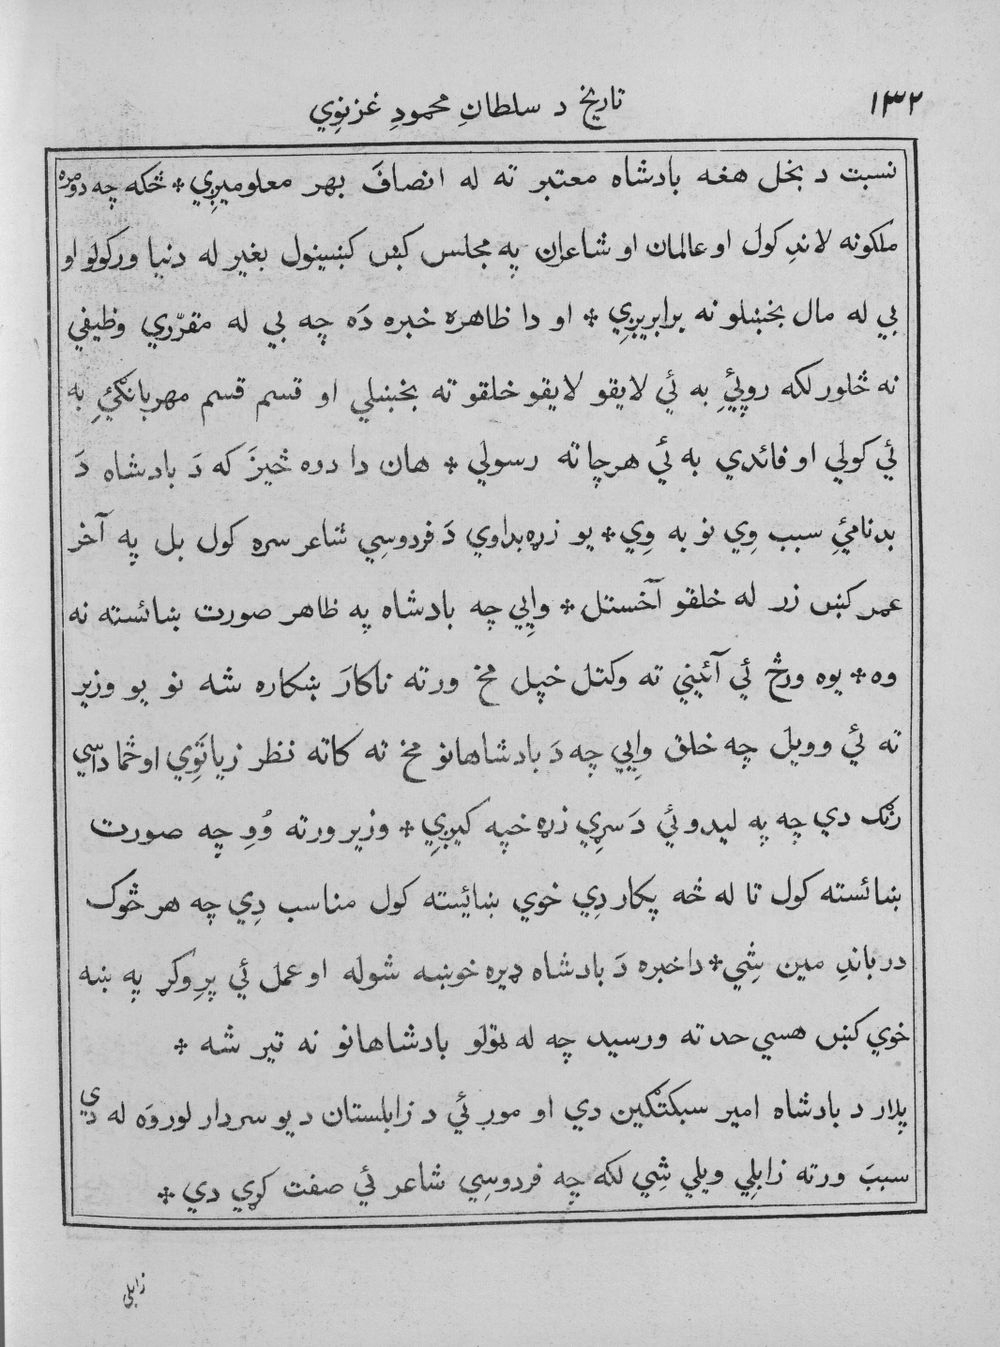 ۱۳۲
تاریخ د سلطانِ محمودِ غزنوِي
نسبت د بخل هغه بادشاه معتبر ته له انصافَ بهر معلومیږِي ٭ څکه چه دومره
ملکونه لاندِ کول او عالمان او شاعران په مجلس کښ کښینول بغیر له دنیا ورکولو او
بي له مال بخښلو نه برابریږِي ٭ او دا ظاهره خبره دَه چه بي له مقرّري وظیفي
نه څلور لکه روپئِ به ئي لایقو لایقو خلقو ته بخښلي او قسم قسم مهربانګئِ به
ئي کولي او فائدي به ئي هرچا ته رسولي ٭ هان دا دوه څیزَ که دَ بادشاه دَ
بدنامئِ سبب وِي نو به وِي ٭ یو زړه بداوي دَ فردوسِي شاعر سره کول بل په آخر
عمر کښ زر له خلقو آخستل ٭ وایِي چه بادشاه په ظاهر صورت ښائسته نه
وه ٭ یوه ورځ ئي آئیني ته وکتل خپل مخ ورته ناکارَ ښکاره شه نو یو وزیر
ته ئي وویل چه خلق وایِي چه دَ بادشاهانو مخ ته کاته نظر زیاتَوِي او څما داسي
رنګ دي چه په لیدو ئي دَ سړِي زړه خپه کیږِي ٭ وزیر ورته وُوِ چه صورت
ښائسته کول تا له څه پکار دِي خوي ښائیسته کول مناسب دِي چه هر څوک
درباندِ مین شِي ٭ دا خبره دَ بادشاه ډیره خوښه شوله او عمل ئي پرِ وکړ په ښه
خوي کښ هسي حد ته ورسید چه له ټولو بادشاهانو نه تیر شه ٭
پلار د بادشاه امیر سبکتګین دي او مور ئي د زابلستان د یو سردار لور وَه له دي
سببَ ورته زابلِي ویلي شِي لکه چه فردوسِي شاعر ئي صفت کړي دي ٭
زابلي